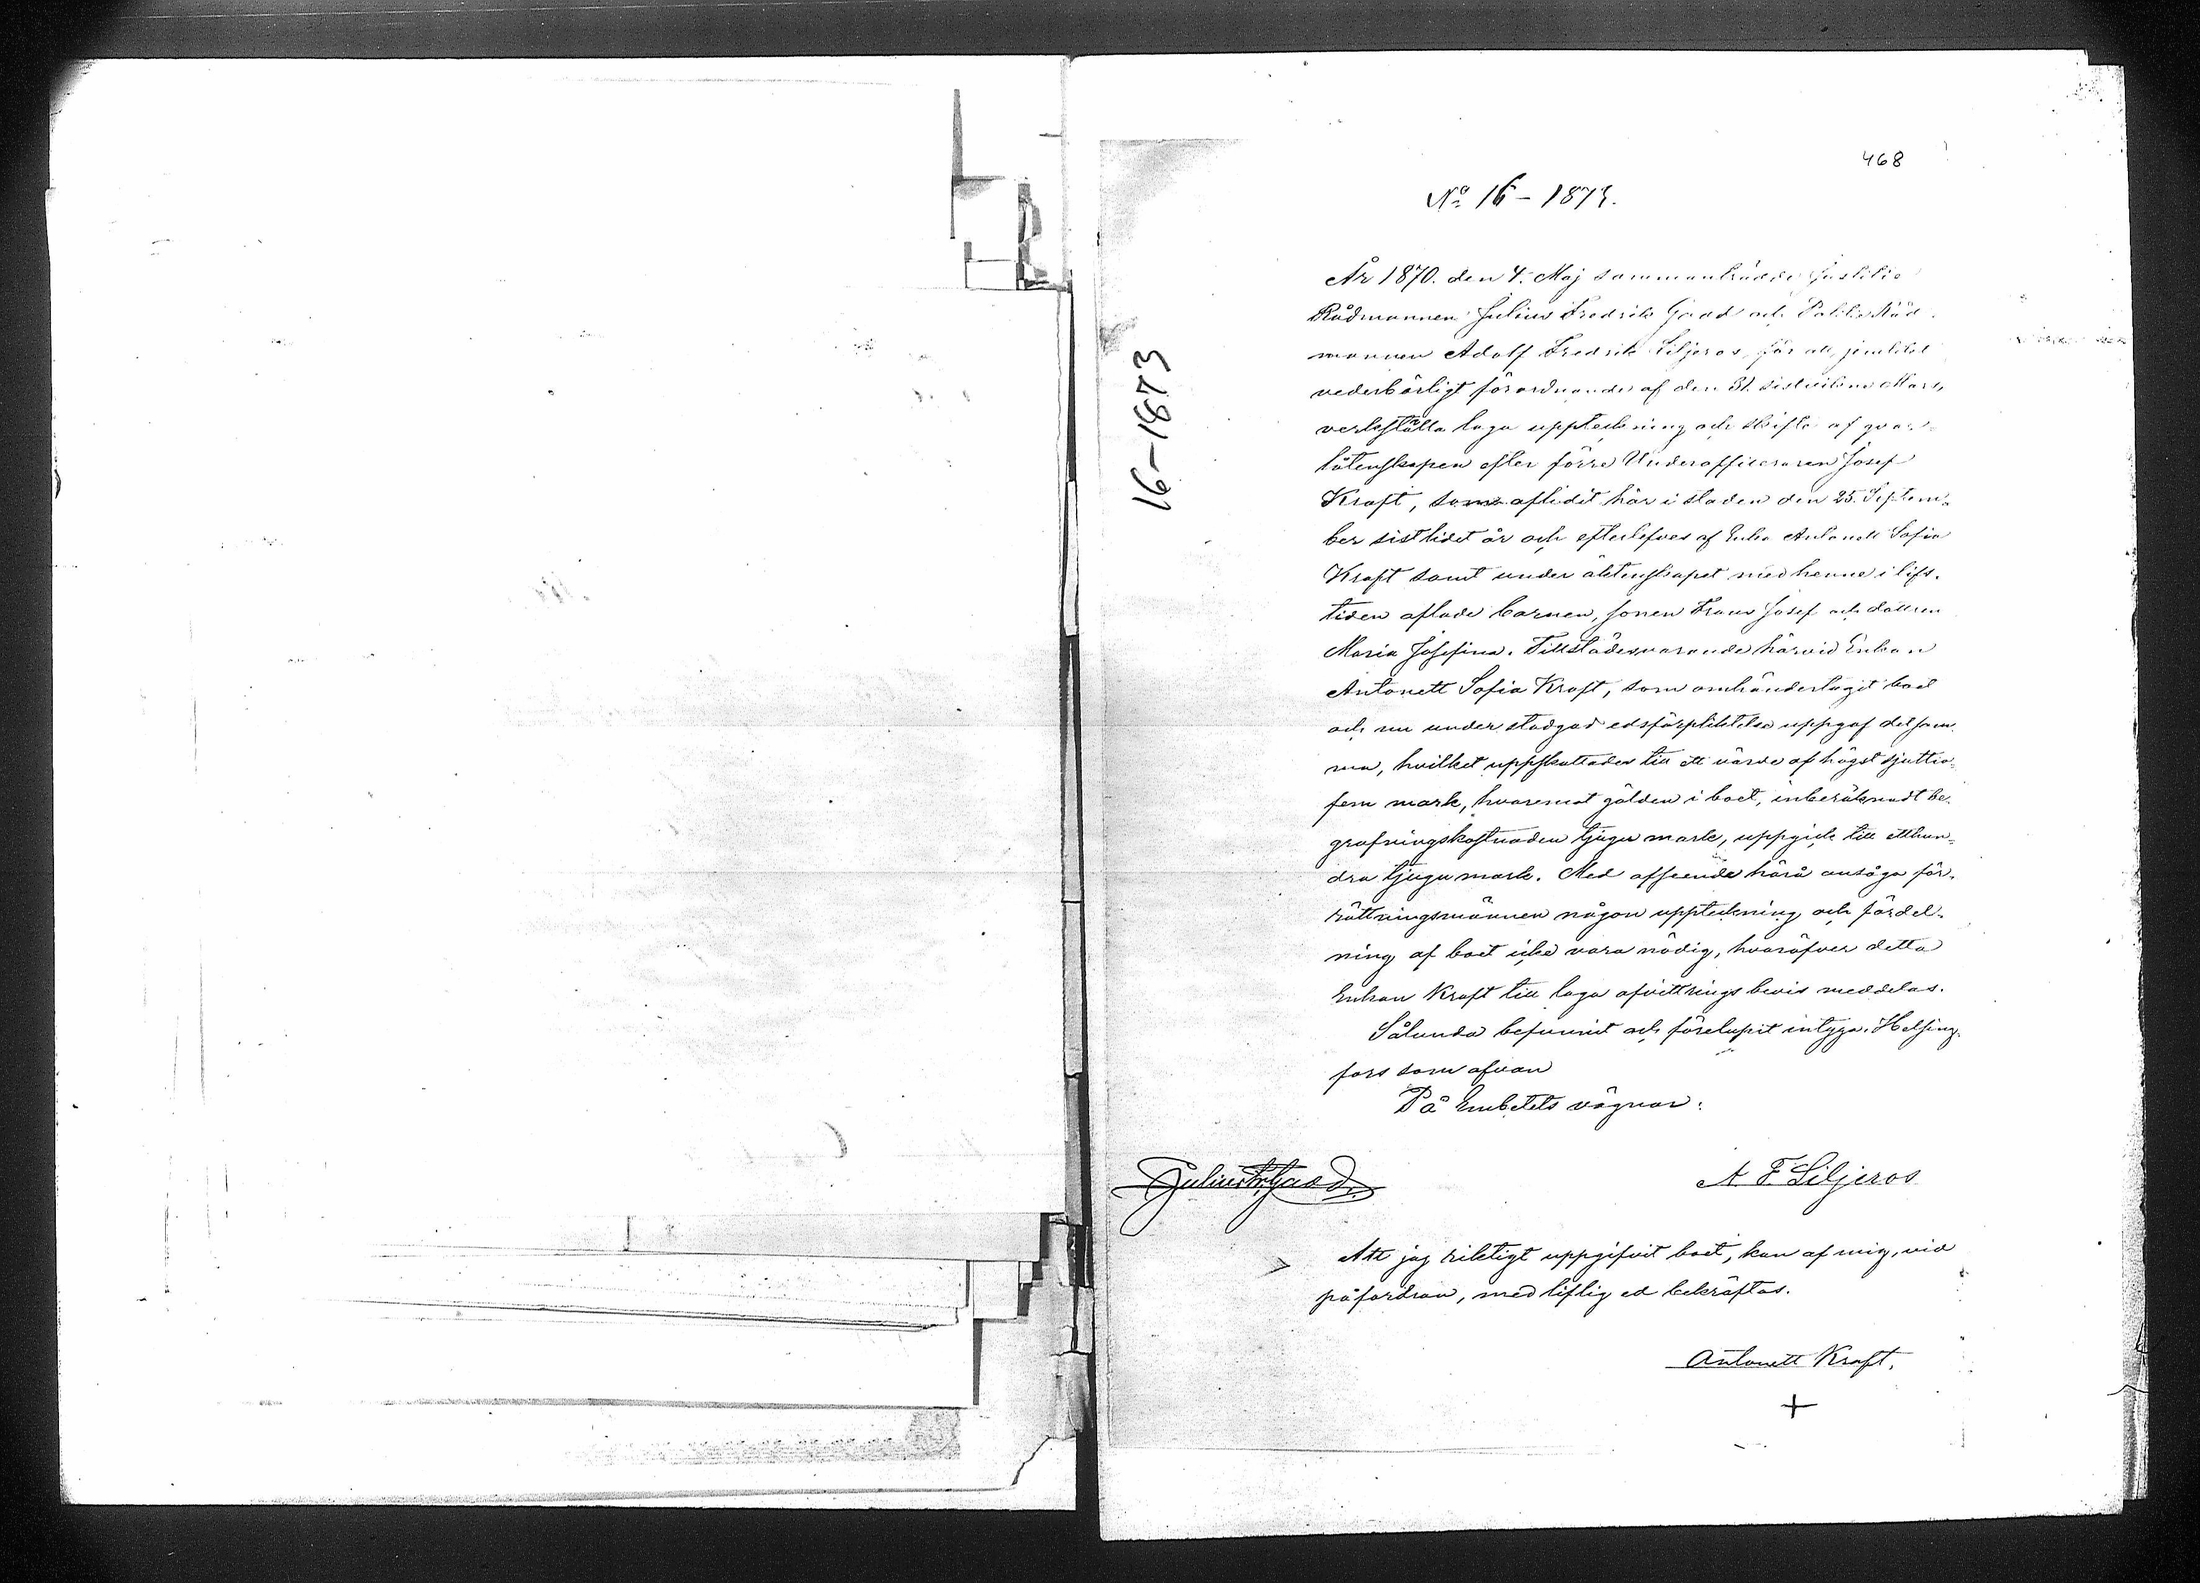 468
No 16 – 1873.
16–1873
År 1870. den 4. Maj sammanträdde Justitie
Rådmannen Julius Fredrik Gaad och PolitieRåd-
mannen Adolf Fredrik Siljeros, för att, jemlikt
vederbörligt förordnande af den 31. sistvikne Mars,
verkställa laga uppteckning och skifte af qvar-
låtenskapen efter förre Underofficeraren Josef
Kraft, som aflidit här i staden den 25. Septem-
ber sistlidet år och efterlefves af Enka Antonett Sofia
Kraft samt under äktenskapet med henne i lifs-
tiden aflade barnen, sonen Frans Josef och dottren
Maria Josefina. Tillstädesvarande härvid Enkan
Antonett Sofia Kraft, som omhändertagit boet
och nu under stadgad edsförpliktelse uppgaf detsam-
ma, hvilket uppskattades till ett värde af högst sjuttio-
fem mark, hvaremot gälden i boet, inberäknadt be-
grafningskostnaden tjugu mark, uppgick till etthun-
dra tjugu mark. Med afseende härå ansågo för-
rättningsmännen någon uppteckning och fördel-
ning af boet icke vara nödig, hvaröfver detta
Enkan Kraft till laga afvittringsbevis meddelas.
Sålunda befunnit och förelupit intyga. Helsing-
fors som ofvan
På Embetets vägnar:
Julius Fr. Gaad.
A F. Siljeros
Att jag riktigt uppgifvit boet, kan af mig, vid
påfordran, med liflig ed bekräftas.
Antonett Kraft.
+